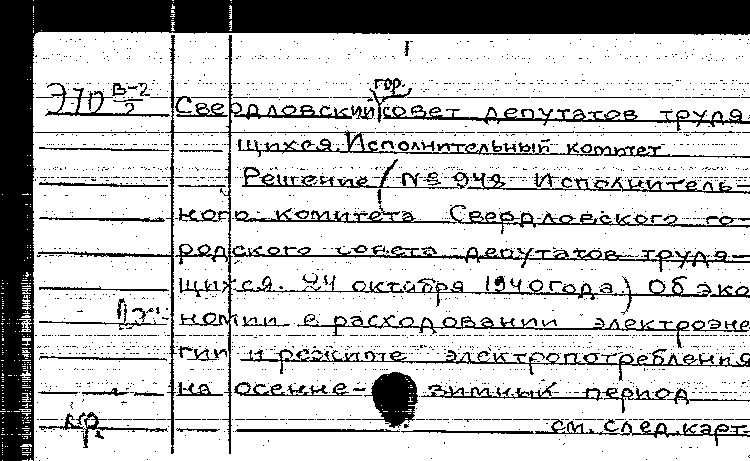 I
гор.
Э70 В-2/2 Свердловский совет депутатов трудя-
щихся. Исполнительный комитет
Решение / № 948 Исполнитель-
ного комитета Свердловского го-
родского совета депутатов трудя-
щихся. 24 октября 1940 года) Об эко
номии в расходовании электроэне
гии и режиме электропотребления
на осенне- зимний период
см. след. карт.